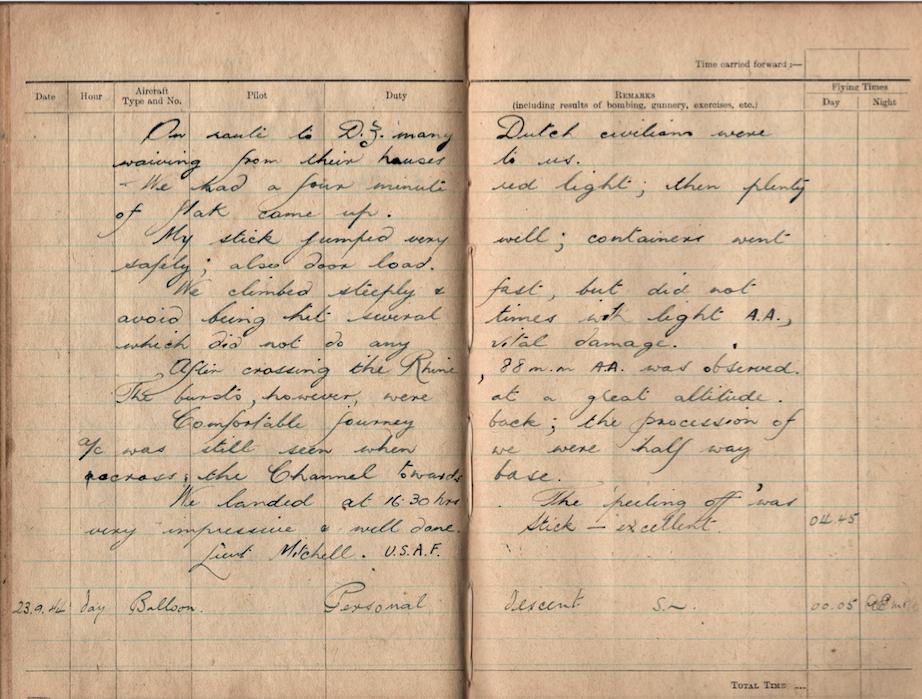 Time carried forward :—
Date Hour Aircraft Type and No. Pilot Duty Remarks (including results of bombing, gunnery, exercises, etc.) Flying Times Day Night
On route to D.Z. many Dutch civilians were
waiving from their houses to us.
- We had a four minute red light; then plenty
of flak came up.
My stick jumped very well; containers went
safely; also door load.
We climbed steeply & fast, but did not
avoid being hit several times with light A.A.,
which did not do any vital damage.
After crossing the Rhine, 88 m.m A.A. was observed.
The bursts, however, were at a great altitude.
Comfortable journey back; the procession of
a/c was still seen when we were half way
across the Channel towards base.
We landed at 16.30 hrs. The 'peeling off' was
very impressive & well done. Stick – excellent. 04.45
Lieut Mitchell. U.S.A.F.
23.9.44 day Balloon. Personal descent 00.05
Total Time ...